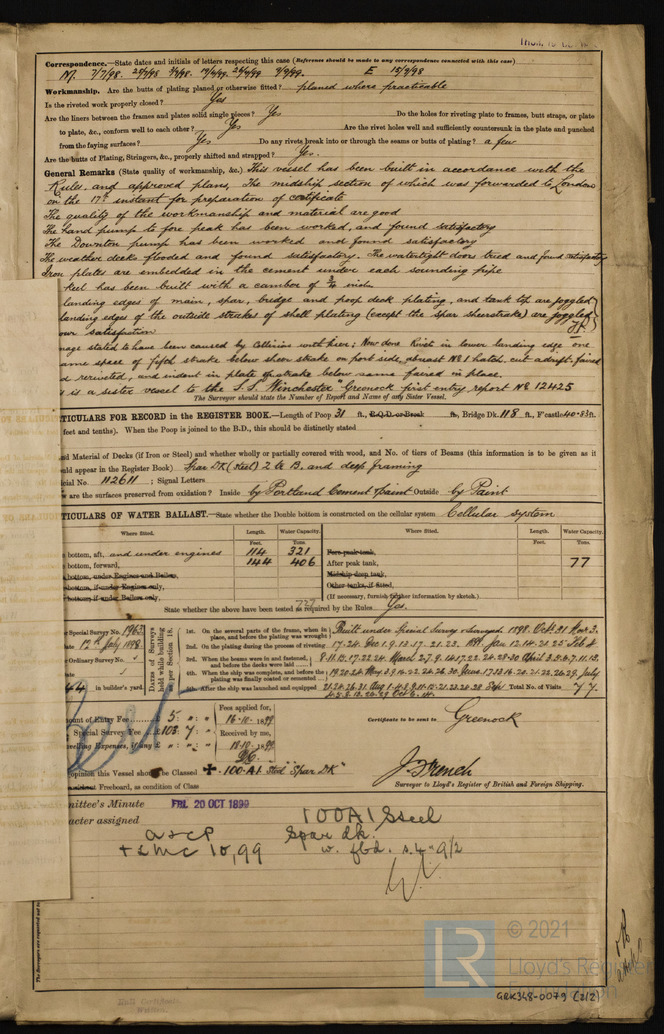 Correspondence.—State dates and initials of letters respecting this case (Reference should be made to any correspondence connected with this case)
M. 7/7/98. E 15/9/98
Workmanship. Are the butts of plating planed or otherwise fitted? planed where practicable
Is the riveted work properly closed? Yes
Are the liners between the frames and plates solid single pieces? Yes Do the holes for riveting plate to frames, butt straps, or plate
to plate, &c., conform well to each other? Yes Are the rivet holes well and sufficiently countersunk in the plate and punched
from the faying surfaces? Yes Do any rivets break into or through the seams or butts of plating? a few
Are the butts of Plating, Stringers, &c., properly shifted and strapped? Yes.
General Remarks (State quality of workmanship, &c.) This vessel has been built in accordance with the
Rules and approved plans, The midship section of which was forwarded to London
on the 17th instant for preparation of certificate
The quality of the workmanship and material are good
The hand pump to fore peak has been worked, and found satisfactory
The Downton pump has been worked and found satisfactory
The weather decks flooded and found satisfactory. The watertight doors tried and found satisfactory
Iron plates are embedded in the cement under each sounding pipe
keel has been built with a camber of inch
landing edges of main, spar, bridge and poop deck plating, and tank top are joggled
landing edges of the outside strakes of shell plating (except the spar sheerstrake) are joggled
our satisfaction
stated to have been caused by Collision with pier; Now done Rivet in lower landing edge one
space of fifth strake below sheer strake on port side, abreast No 1 hatch, cut adrift, faired
riveted, and indent in plate of strake below same faired in place.
is a sister vessel to the S.S. "Winchester" Greenock first entry report No 12425
The Surveyor should state the Number of Report and Name of any Sister Vessel.
TICULARS FOR RECORD in the REGISTER BOOK.—Length of Poop 31 ft., R.Q.D. or Break ft., Bridge Dk. 118 ft., F'castle 40.83 ft.
feet and tenths). When the Poop is joined to the B.D., this should be distinctly stated
nd Material of Decks (if Iron or Steel) and whether wholly or partially covered with wood, and No. of tiers of Beams (this information is to be given as it
uld appear in the Register Book) Spar DK (steel) 2 to B. and deep framing
cial No. 112611; Signal Letters
w are the surfaces preserved from oxidation? Inside by Portland Cement & paint Outside by Paint
TICULARS OF WATER BALLAST.—State whether the Double bottom is constructed on the cellular system Cellular system
Where fitted. Length. Water Capacity. Where fitted. Length. Water Capacity.
Feet. Tons. Feet. Tons.
bottom, aft, and under engines 114 321 Fore peak tank,
bottom, forward, 144 406 After peak tank, 77
bottom, under Engines and Boilers, Midship deep tank,
bottom, if under Engines only, Other tanks, if fitted,
bottom, if under Boilers only, (If necessary, furnish further information by sketch.)
State whether the above have been tested as required by the Rules Yes.
727
Special Survey No.
Date 12th July 1898
Ordinary Survey No.
Date
44 in builder's yard.
Dates of Surveys held while building as per Section 18.
1st. On the several parts of the frame, when in place, and before the plating was wrought Built under Special Survey & Surveyed 1898. Oct 31 Nov 3.
2nd. On the plating during the process of riveting
3rd. When the beams were in and fastened, and before the decks were laid
4th. When the ship was complete, and before the plating was finally coated or cemented
5th. After the ship was launched and equipped Total No. of Visits 77
ount of Entry Fee £ 5 Fees applied for, 16.10.1899
Special Survey Fee £ 103 7 Received by me, 18.10.1899
velling Expenses, if any £
Certificate to be sent to Greenock
opinion this Vessel should be Classed ✠ 100 A1 Steel "Spar DK"
Freeboard, as condition of Class
J. French
Surveyor to Lloyd's Register of British and Foreign Shipping.
mittee's Minute FRI. 20 OCT 1899
racter assigned 100A1 Steel
Spar dk.
a & c p
+ LMC 10,99 w. fbd.
© 2021
LR
Lloyd's Register
GRK348-0079 (2/2)